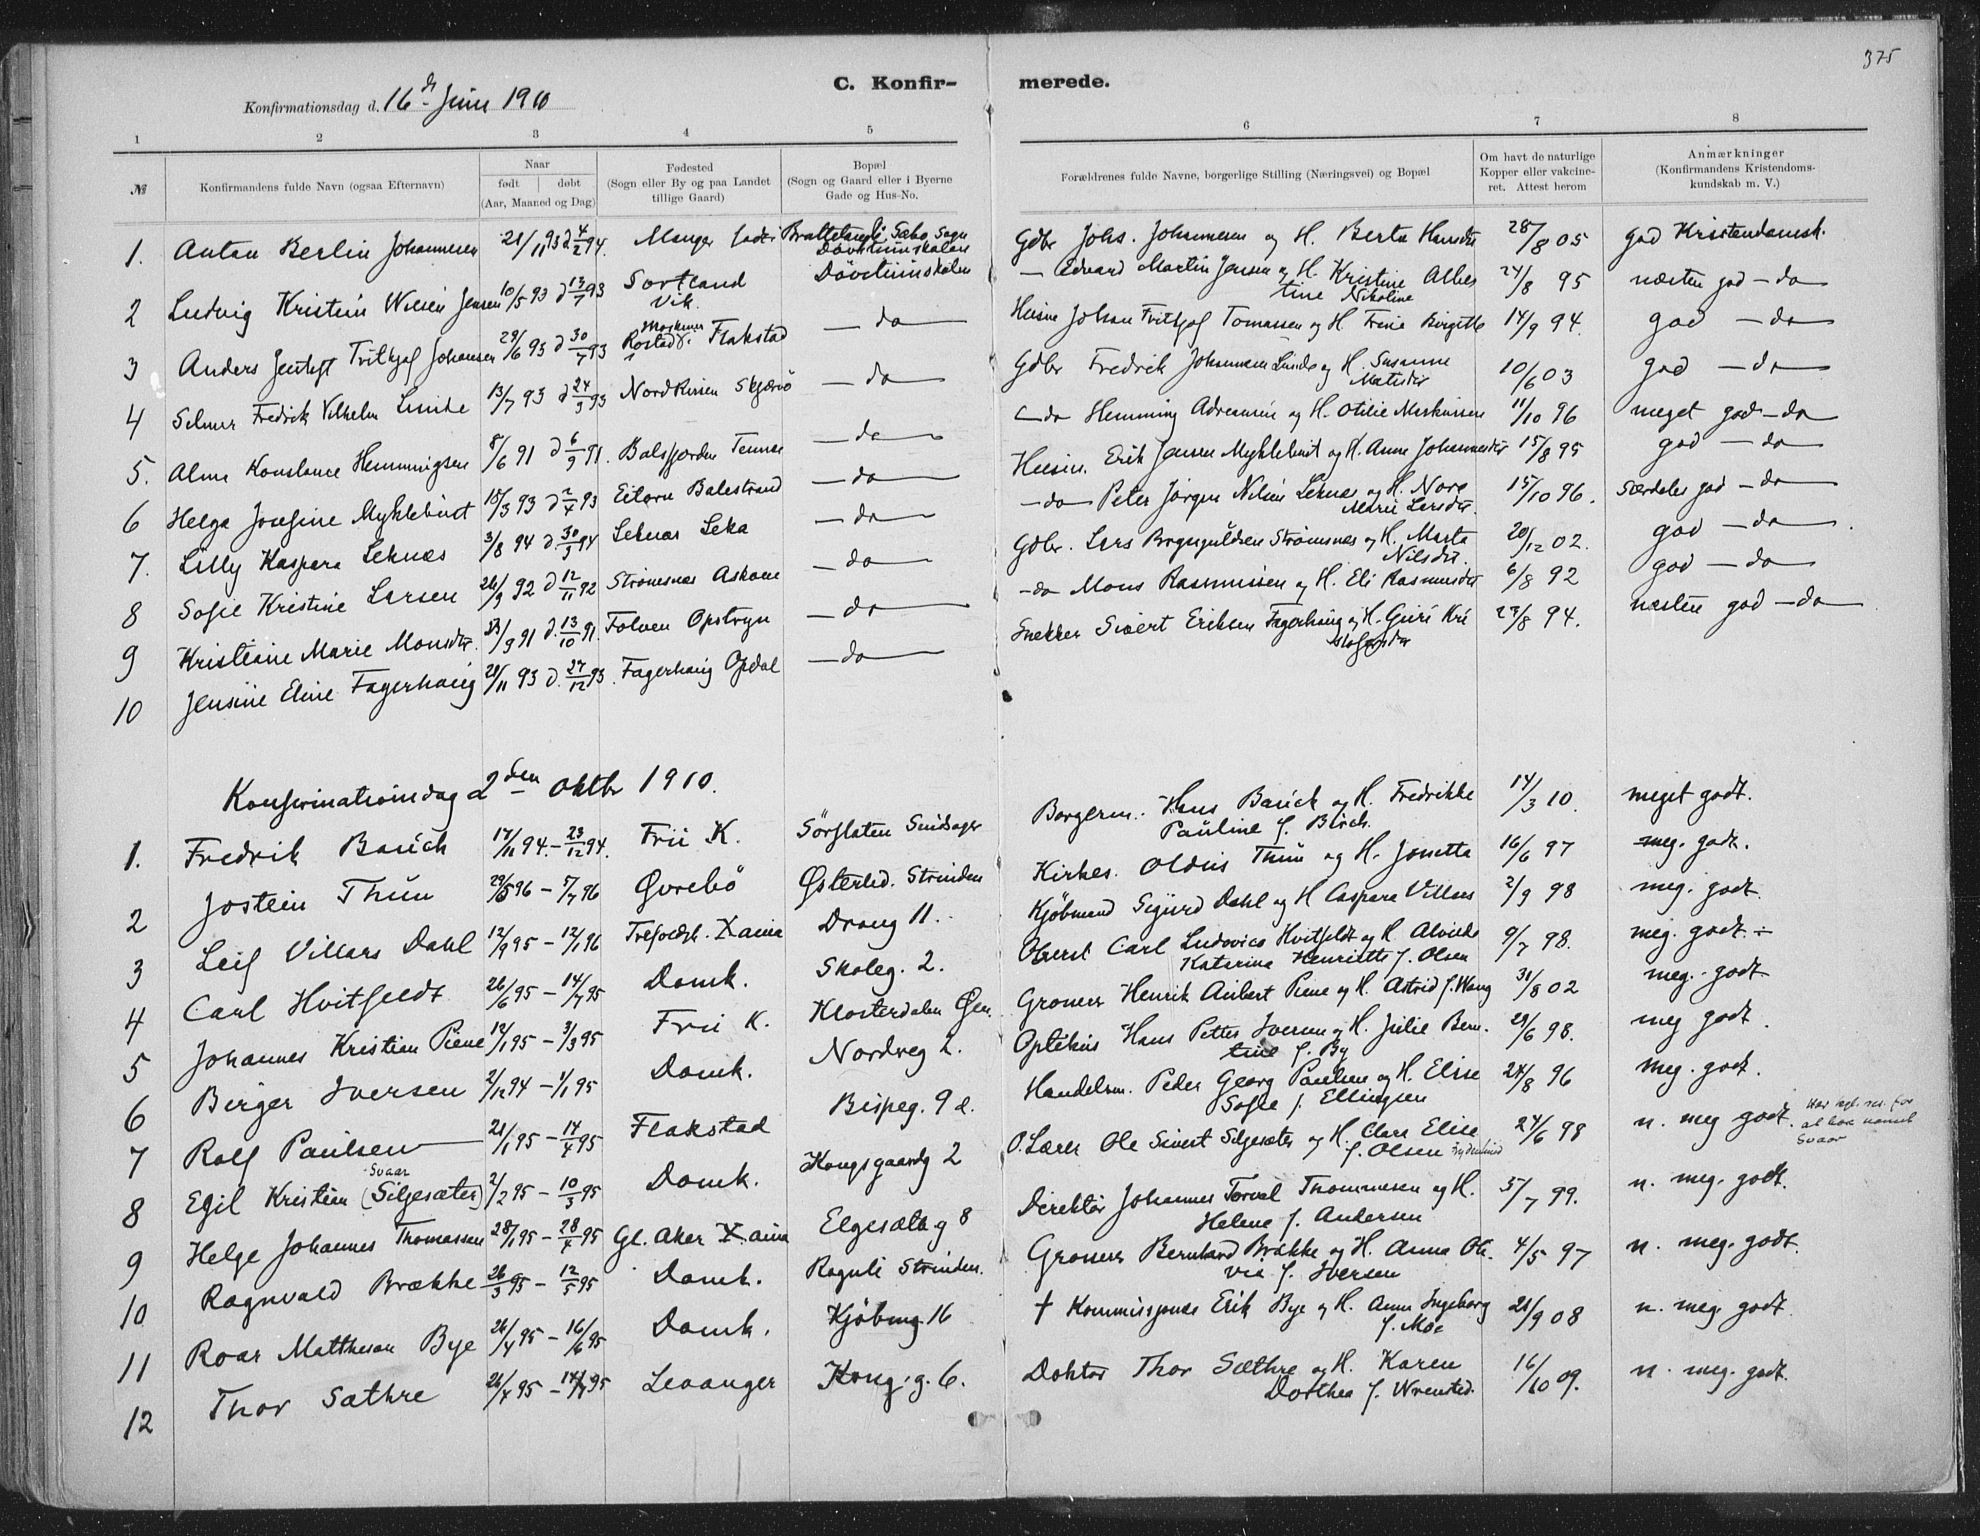 375
C. Konfir- merede.
Konfirmationsdag d. 16de Juni 1910
1 2 3 4 5 6 7 8
№ Konfirmandens fulde Navn (ogsaa Efternavn) Naar født døbt (Aar, Maaned og Dag) Fødested (Sogn eller By og paa Landet tillige Gaard) Bopæl (Sogn og Gaard eller i Byerne Gade og Hus-No. Forældrenes fulde Navne, borgerlige Stilling (Næringsvei) og Bopæl Om havt de naturlige Kopper eller vakcineret. Attest herom Anmærkninger (Konfirmandens Kristendomskundskab m. V.)
1. Anton Berlin Johannesen 21/11 93 d 4/2 94. Manger Sæbø Sogn Døvstumskolen Gdbr Johs. Johannesen og H. Berta Hansdtr 28/8 05 god Kristendomsk.
2 Ludvig Kristein Jensen 10/5 93 d 13/7 93 Sortland Vik Døvstumskolen — Edvard Martin Jensen og H. Kristine Albertine Nikoline 24/8 95 næsten god — do
3 Anders Jentoft Frithjof Johansen 29/6 93 d 30/7 93 Flakstad — do — Husm Johan Fritjof Tomassen og H Trine Birgitte 14/9 94. god — do
4 Selmer Fredrik Vilhelm Lunde 13/7 93 d 24/9 93 Skjærvø — do — Gdbr Fredrik Johannesen Lunde og H. Susanne 10/6 03 god — do
5. Alma Konstance Hemmingsen 8/6 91 d 6/9 91. Balsfjorden — do — — do Hemming og H. Otilie 11/10 96 meget god — do
6 Helga Josefine Myklebust 15/3 93 d 2/4 93 Balestrand — do — Husm. Erik Jensen Myklebust og H. Anne Johannesdtr 15/8 95 god — do
7. Lilly Kaspara Leknæs 3/8 94 d. 30/9 94 Leknæs Leka — do — — do Peter Jørgen Nilsen Leknæs og H. Nora Marie Larsdtr. 15/10 96. særdeles god — do
8 Sofie Kristine Larsen 26/9 92 d 12/11 92 Strømsnæs Askøen — do — Gdbr. Lars Strømsnes og H. Marta Nilsdtr. 20/12 02. god — do
9 Kristiane Marie Monsdtr. 23/9 91 d. 13/10 91 Folven Opstryn — do — — do Mons Rasmussen og H. Eli Rasmusdtr 6/8 92 god — do
10 Jensine Eline Fagerhaug 20/11 93 d. 27/12 93. Fagerhaug Opdal — do — Snekker Sivert Eriksen Fagerhaug og H. Guri Kristofersdtr 23/8 94. næsten god — do
Konfirmationsdag 2den Oktbr 1910.
1. Fredrik Bauck 17/11 94. — 23/12 94. Frue K. Hans Bauck og H. Fredrikke Pauline f. Birch. 14/3 10. meget godt.
2 Jostein Thun 29/5 96 — 5/7 96 Øvrebø Østerlid. Strinden Kirkes. Oldus Thun og H. Jonetta 16/6 97 meg. godt.
3 Leif Villars Dahl 12/9 95 — 12/1 96 Trefoldgh. Xania Drong 11. Kjøbmand Sigurd Dahl og H Caspara Villars 2/9 98 meg. godt
4 Carl Hvitfeldt 26/6 95 — 14/7 95 Domk. Skoleg. 2. Oberst Carl Ludovico Hvitfeldt og H Alvilde Katarina Henriette f. Olsen 9/7 98. meg. godt.
5 Johannes Kristian Piene 12/1 95 — 3/3 95 Frue K. Klosterdalen Øen. Grosserer Henrik Aubert Piene og H. Astrid f. Wang 31/8 02 meg. godt
6 Birger Iversen 2/12 94 — 1/1 95 Domk. Nordreg 2. Optikus Hans Petter Iversen og H. Julie Berntine f. By 28/6 98. meg godt.
7 Rolf Paulsen 21/1 95 — 14/4 95 Flakstad Bispeg. 9 d. Handelsm. Peder Georg Paulsen og H. Elise Sofie f. Ellingsen 24/8 96 meg. godt.
8 Egil Kristian (Siljesæter) Svaar 2/2 95 — 10/3 95 Domk. Kongsgaardg 2 O. Lærer Ole Sivert Siljesæter og H. Clara Elise f. Olsen 24/6 98 n. meg godt.
9 Helge Johannes Thomassen 28/1 95 — 28/4 95 Gl. Aker Xania Elgesæterg 8 Direktør Johannes Torval Thommesen og H. Helene f. Andersen 5/7 99. n. meg. godt.
10 Ragnvald Brække 26/3 95 — 12/5 95 Domk. Roguli Strinden. Grosserer Bernhard Brække og H. Anna Olivia f. Iversen 4/5 97 n. meg. godt.
11 Roar Mattheson Bye 26/4 95 — 16/6 95 Domk. Kjøbmg 16 † Kommissjonær Erik Bye og H. Anna Ingeborg f. Moe 21/9 08 n. meg. godt.
12 Thor Sæthre 26/4 95 — 14/7 95 Levanger Kong.g. 6. Doktor Thor Sæthre og H. Karen Dorthea f. Wrensted. 16/10 09. n. meg. godt.